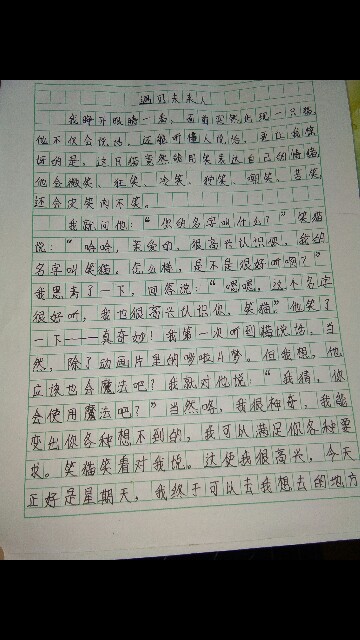 遇见未来人
我睁开眼睛一看，面前突然出现一只猫，
他不仅会说话，还能听懂人说话，更让我惊
讶的是，这只猫竟然能用笑表达自己的情绪，
他会微笑、狂笑、冷笑、嘲笑、苦笑
还会皮笑肉不笑。
我就问他：“你的名字叫什么？”笑猫
说：“哈哈，亲爱的，很高兴认识你，我的
名字叫笑猫，怎么样，是不是很好听啊？”
我思考了一下，回答说：“嗯嗯，这个名字
很好听，我也很高兴认识你，笑猫。”他笑了
一下——真奇妙！我第一次听到猫说话，当
然，除了动画片里的哆啦A梦。但我想，他
应该也会魔法吧？我就对他说，“我猜，你
会使用魔法吧？”当然咯，我很神奇，我能
变出你各种想不到的，我可以满足你各种要
求。笑猫笑着对我说。这使我很高兴，今天
正好是星期天，我终于可以去我想去的地方